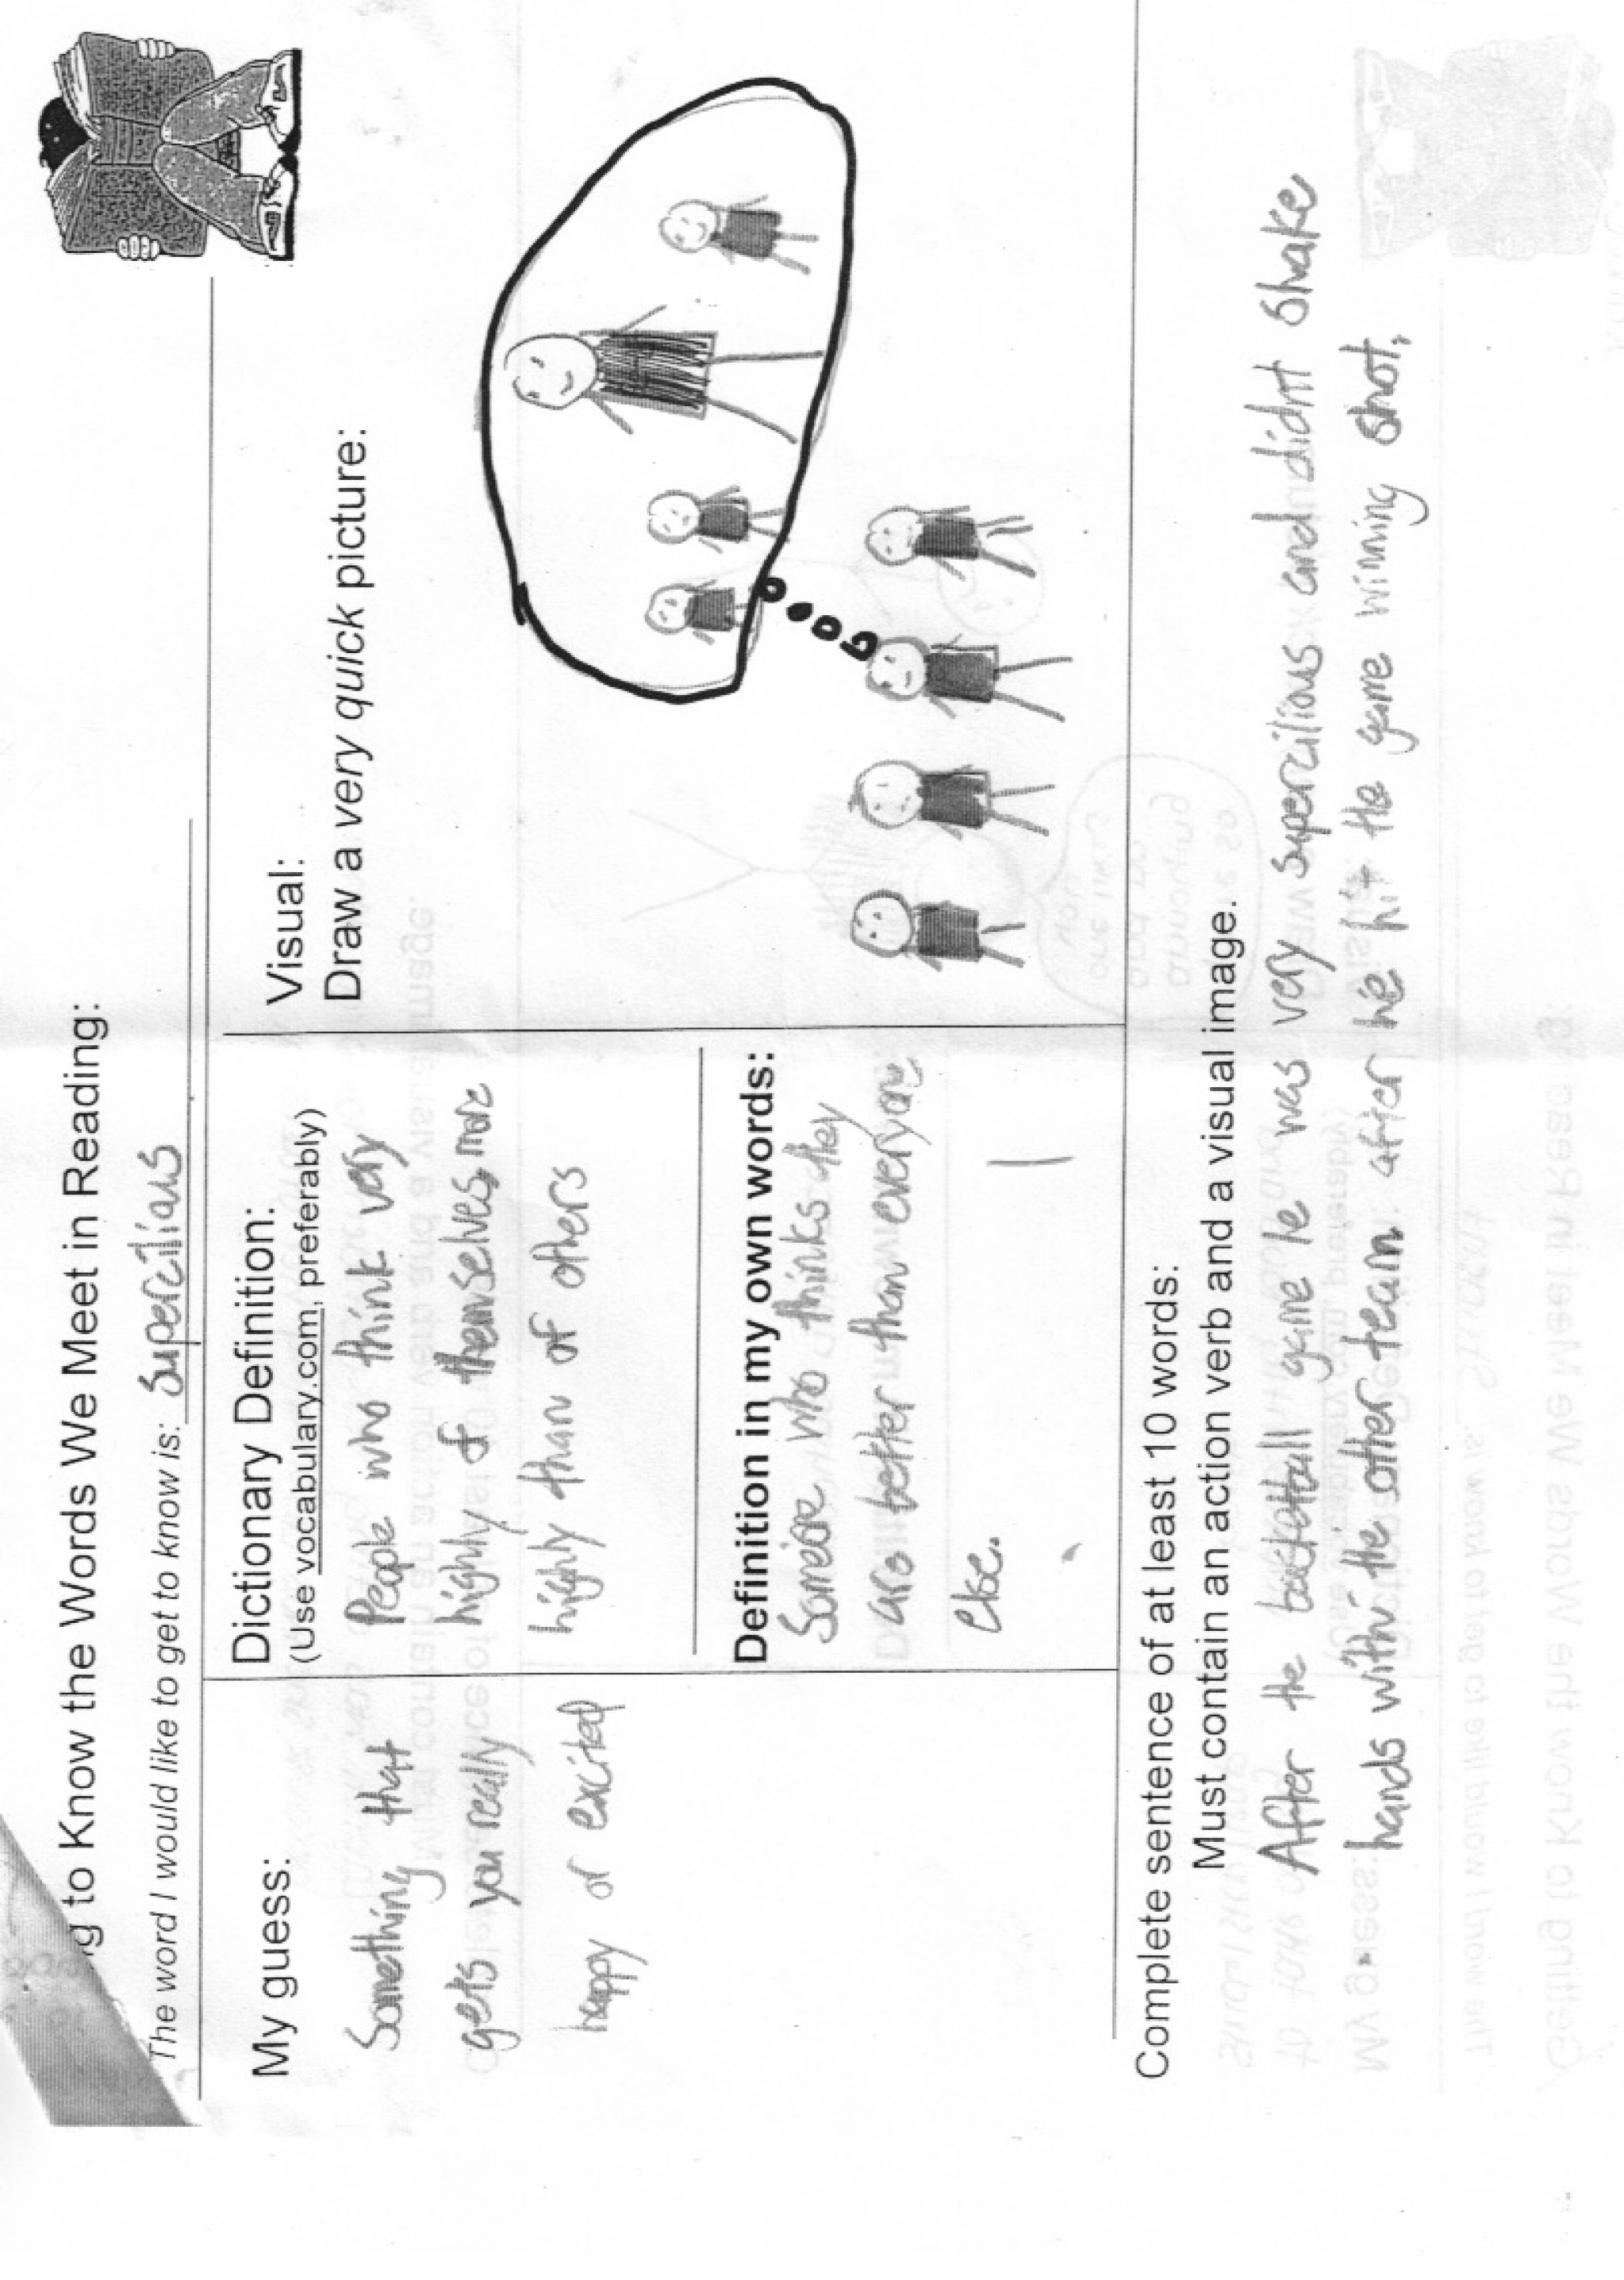 g to Know the Words We Meet in Reading:
The word I would like to get to know is: Supercilious
My guess:
Something that
gets you really
happy or excited
Dictionary Definition:
(Use vocabulary.com, preferably)
People who think very
highly of themselves, more
highly than of others
Definition in my own words:
Someone who thinks they
are better than everyone
else.
Visual:
Draw a very quick picture:
Complete sentence of at least 10 words:
Must contain an action verb and a visual image.
After the game he was very supercilious and didnt shake
hands with the other team after he hit the game winning shot.